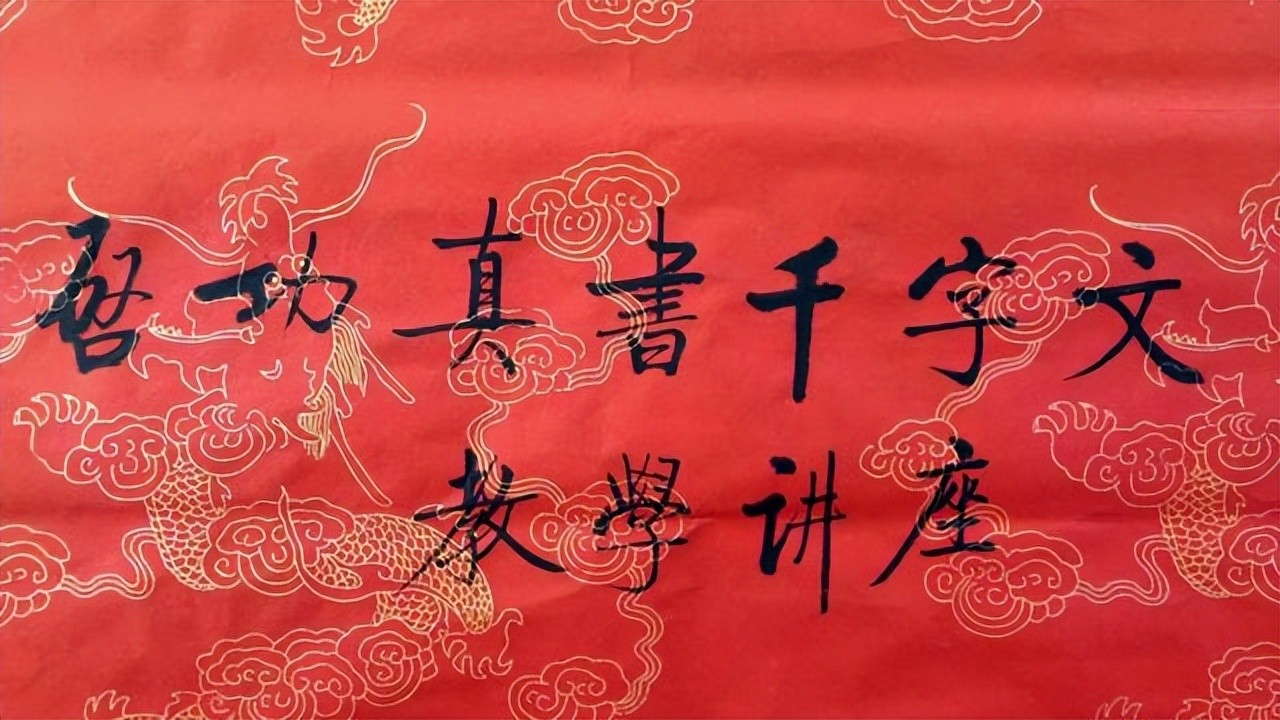 启功真書千字文
教學讲座